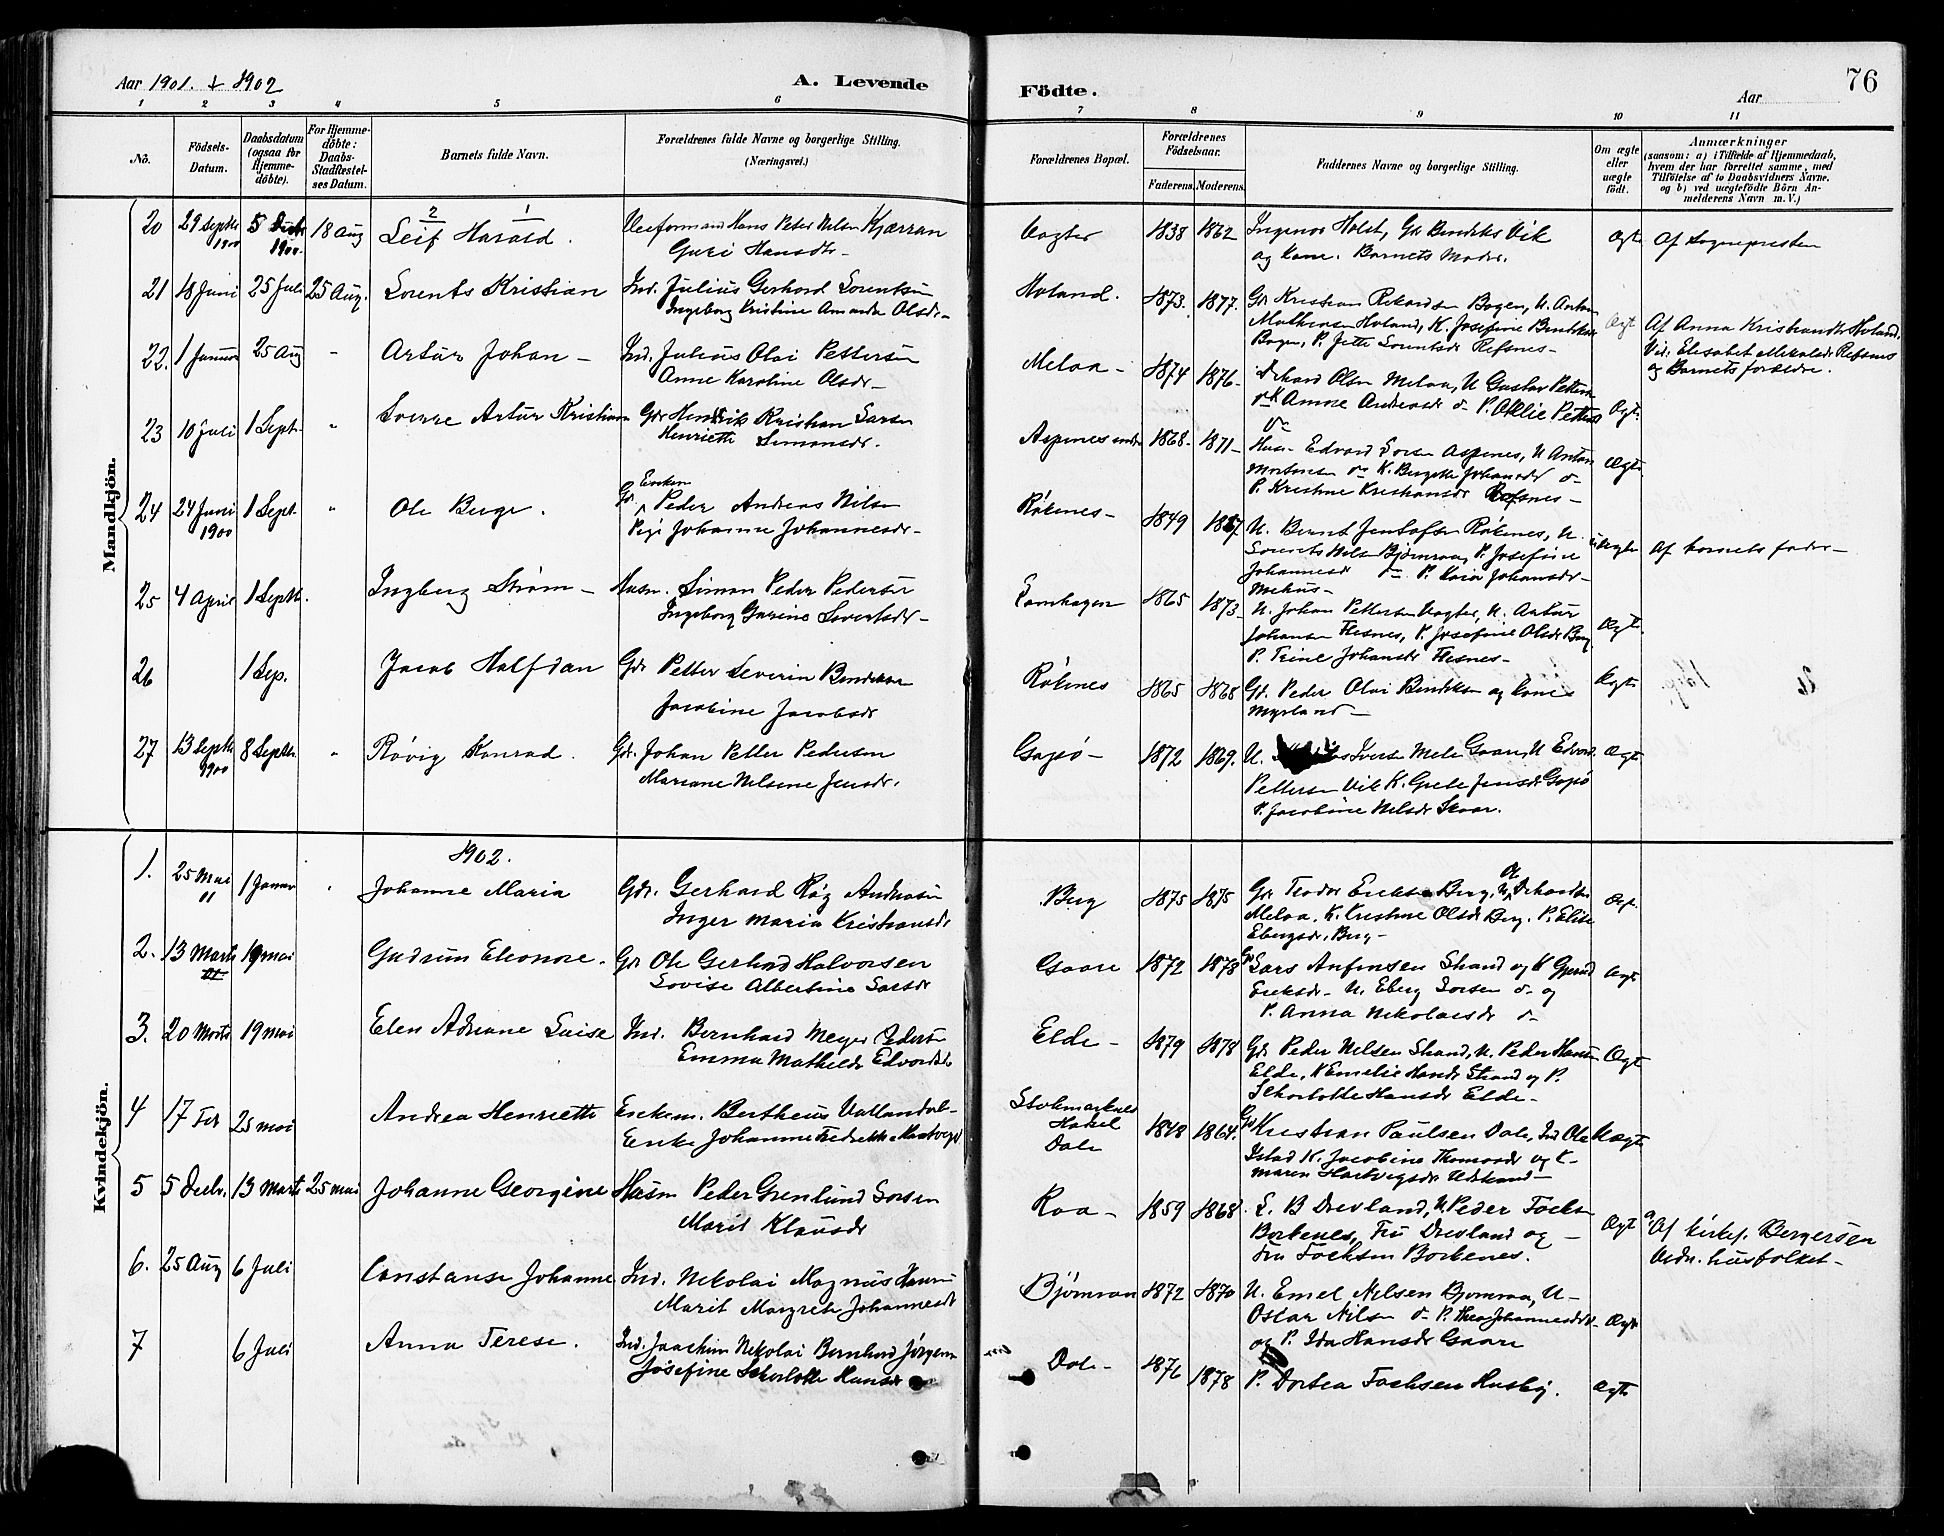 Aar 1901. + 1902
A. Levende
Födte.
Aar
76
1 2 3 4 5 6 7 8 9 10 11
No.
Födsels-Datum.
Daabsdatum (ogsaa for Hjemme-döbte).
For Hjemme-döbte: Daabs-Stadfæstel-ses Datum.
Barnets fulde Navn.
Forældrenes fulde Navne og borgerlige Stilling.
(Næringsvei.)
Forældrenes Bopæl.
Forældrenes Födselsaar.
Faderens. Moderens.
Faddernes Navne og borgerlige Stilling.
Om ægte eller uægte födt.
Anmærkninger
(saasom: a) i Tilfælde af Hjemmedaab, hvem der har forrettet samme, med Tilföielse af to Daabsvidners Navne, og b) ved uægtefödte Börn An-melderens Navn m. V.)
Mandkjön.
20 29 Septbr 1900 5 1900. 18 Aug
2 1
Leif Harald.
Hans Peter Nilsen Kjærran
Guri Hansdtr
Vagter 1838 1862
Ingenør Holst, Gdr Bendikts Vik
og Kone. Barnets Moder.
Ægte
Af Sognepresten
21 18 Juni 25 Juli 25 Aug.
Lorents Kristian
Ind. Julius Gerhard Lorentsen
Ingeborg Kristine Amanda Olsdr
Holand. 1873. 1877.
Gdr Kristian Rikardsen Bogen, U. Anton
Mathisen Holand, K. Josefine Bendiksen
Bogen, P. Jette Lorentsdr Refsnes
Ægt
Af Anna Kristiansdtr Holand.
Vid. Elisabet Mikalsdr Refsnes
og Barnets forældre.
22. 1 Januar 25 Aug "
Artur Johan
Ind. Julius Olai Pettersen
Anne Karoline Olsdr
Melaa 1874 1876
Olsen Melaa, U Gustav Pettersen
K Anne Andreasdr P. Ottilie Petters
Ægt.
23 10 Juli 1 Sept. "
Sverre Artur Kristian
Gdr Hendrik Kristian Larsen
Henriette Simonsdr.
Aspenes 1868 1871
Husm. Edvard Larsen Aspenes, U Anton
Mortensen K. Bergitte Johansdr
P. Kristine Kristiansdr Refsnes
Ægt.
24 24 Juni 1900 1 Sept "
Ole Berge.
Gdr Enkem Peder Andreas Nilsen
Pige Johanne Johannesdr
Røkenes 1849 1857
U. Bernt Jentoftsen Røkenes, U.
Lorents Nilsen Bjømraa, P. Josefine
Johannesdr P. Kaia Johansdr
Uægte
Af barnets fader
25 4 April 1 Septb.
Ingberg Strøm
Husm. Simon Peder Pedersen
Ingeborg Garine Sivertsdr
1865 1873
U. Johan Pettersen Vagter, U. Artur
Johansen Flesnes, P. Josefine Olsdr Berg
P. Trine Johansdr Flesnes
Ægt.
26 1 Sep.
Jacob Halfdan
Gdr Petter Severin Bendiksen
Jacobine Jacobsdr
Røkenes 1865 1868
Gdr. Peder Olai Bendiksen og Kone
Myrland
Ægt
27 13 Septbr 1900 8 Septbr. "
Røvig Konrad.
Gdr. Johan Petter Pedersen
Mariane Nilsine Jensdr.
Gapsø 1872 1869.
U. Iversen Mele Gaare, U Edvard
Pettersen Vik K. Grete Jensdr Gapsø
P. Jacobine Nilsdr Skaar.
Ægt
Kvindekjön.
1902.
1. 25 Mai 01 1 Januar "
Johanne Maria
Gdr. Gerhard Røg Andreasen
Inger Maria Kristiansdr
Berg 1875 1875
Gdr. Teodor Eriksen Berg, U.
Melaa, K. Kristine Olsdr Berg. P. Elise
Ebergsdr, Berg
Ægt.
2. 13 Marts 01 19 Mai
Gudrun Eleonore.
Gdr Ole Gerhard Halvorsen
Lovise Albertine Larsdr
Gaare 1872 1878
Gdr Lars Anfinsen Strand og K
Eriksdr U. Eberg Larsen og
P. Anna Nikolaisdr
Ægt
3. 20 Marts 19 Mai
Elen Adriane Luise
Ind. Bernhard Meyer Pedersen
Emma Mathilde Edvardsdr
Elde 1879 1878
Gdr Peder Nilsen Strand, U. Peder Hansen
Elde, K Emelie Hansdr Strand og P.
Scharlotte Hansdr Elde
Ægt
4 17 Febr 25 Mai
Andrea Henriette
Enkem. Bertheus Vallandsl
Enke Johanne Fredrikke Hartvigsd
Stokmarknes Hadsel
Dale
1848 1864.
Gdr Kristian Paulsen Dale, Ind Ole
K. Jacobine Thomasdr og K
Maren Hartvigsdr
Uægt
5 5 Decbr. 13 Marts 25 Mai
Johanne Georgine
Husm Peder Grenlund Larsen
Marit Klausdr
Raa 1859 1868
L. B Drevland, U. Peder Focksen
Borkenes, Fru Drevland og
Fru Focksen Borkenes.
Ægt
Af kirkes. Bergersen
Vidn. husfolket
6. 25 Aug 6 Juli
Constanse Johanne
Ind. Nikolai Magnus Hansen
Marit Margrete Johannesdr
Bjømraa 1872 1870
U. Emel Nilsen Bjømraa, U
Oskar Nilsen P. Thea Johannesdr
og P. Ida Hansdr Gaare
Ægt
7 6 Juli
Anna Terese.
Ind. Joachim Nikolai Bernhard Jørgensen
Josefine Scharlotte Hansdr
Dale 1876 1878
P. Dortea Fochsen Husby.
Ægt